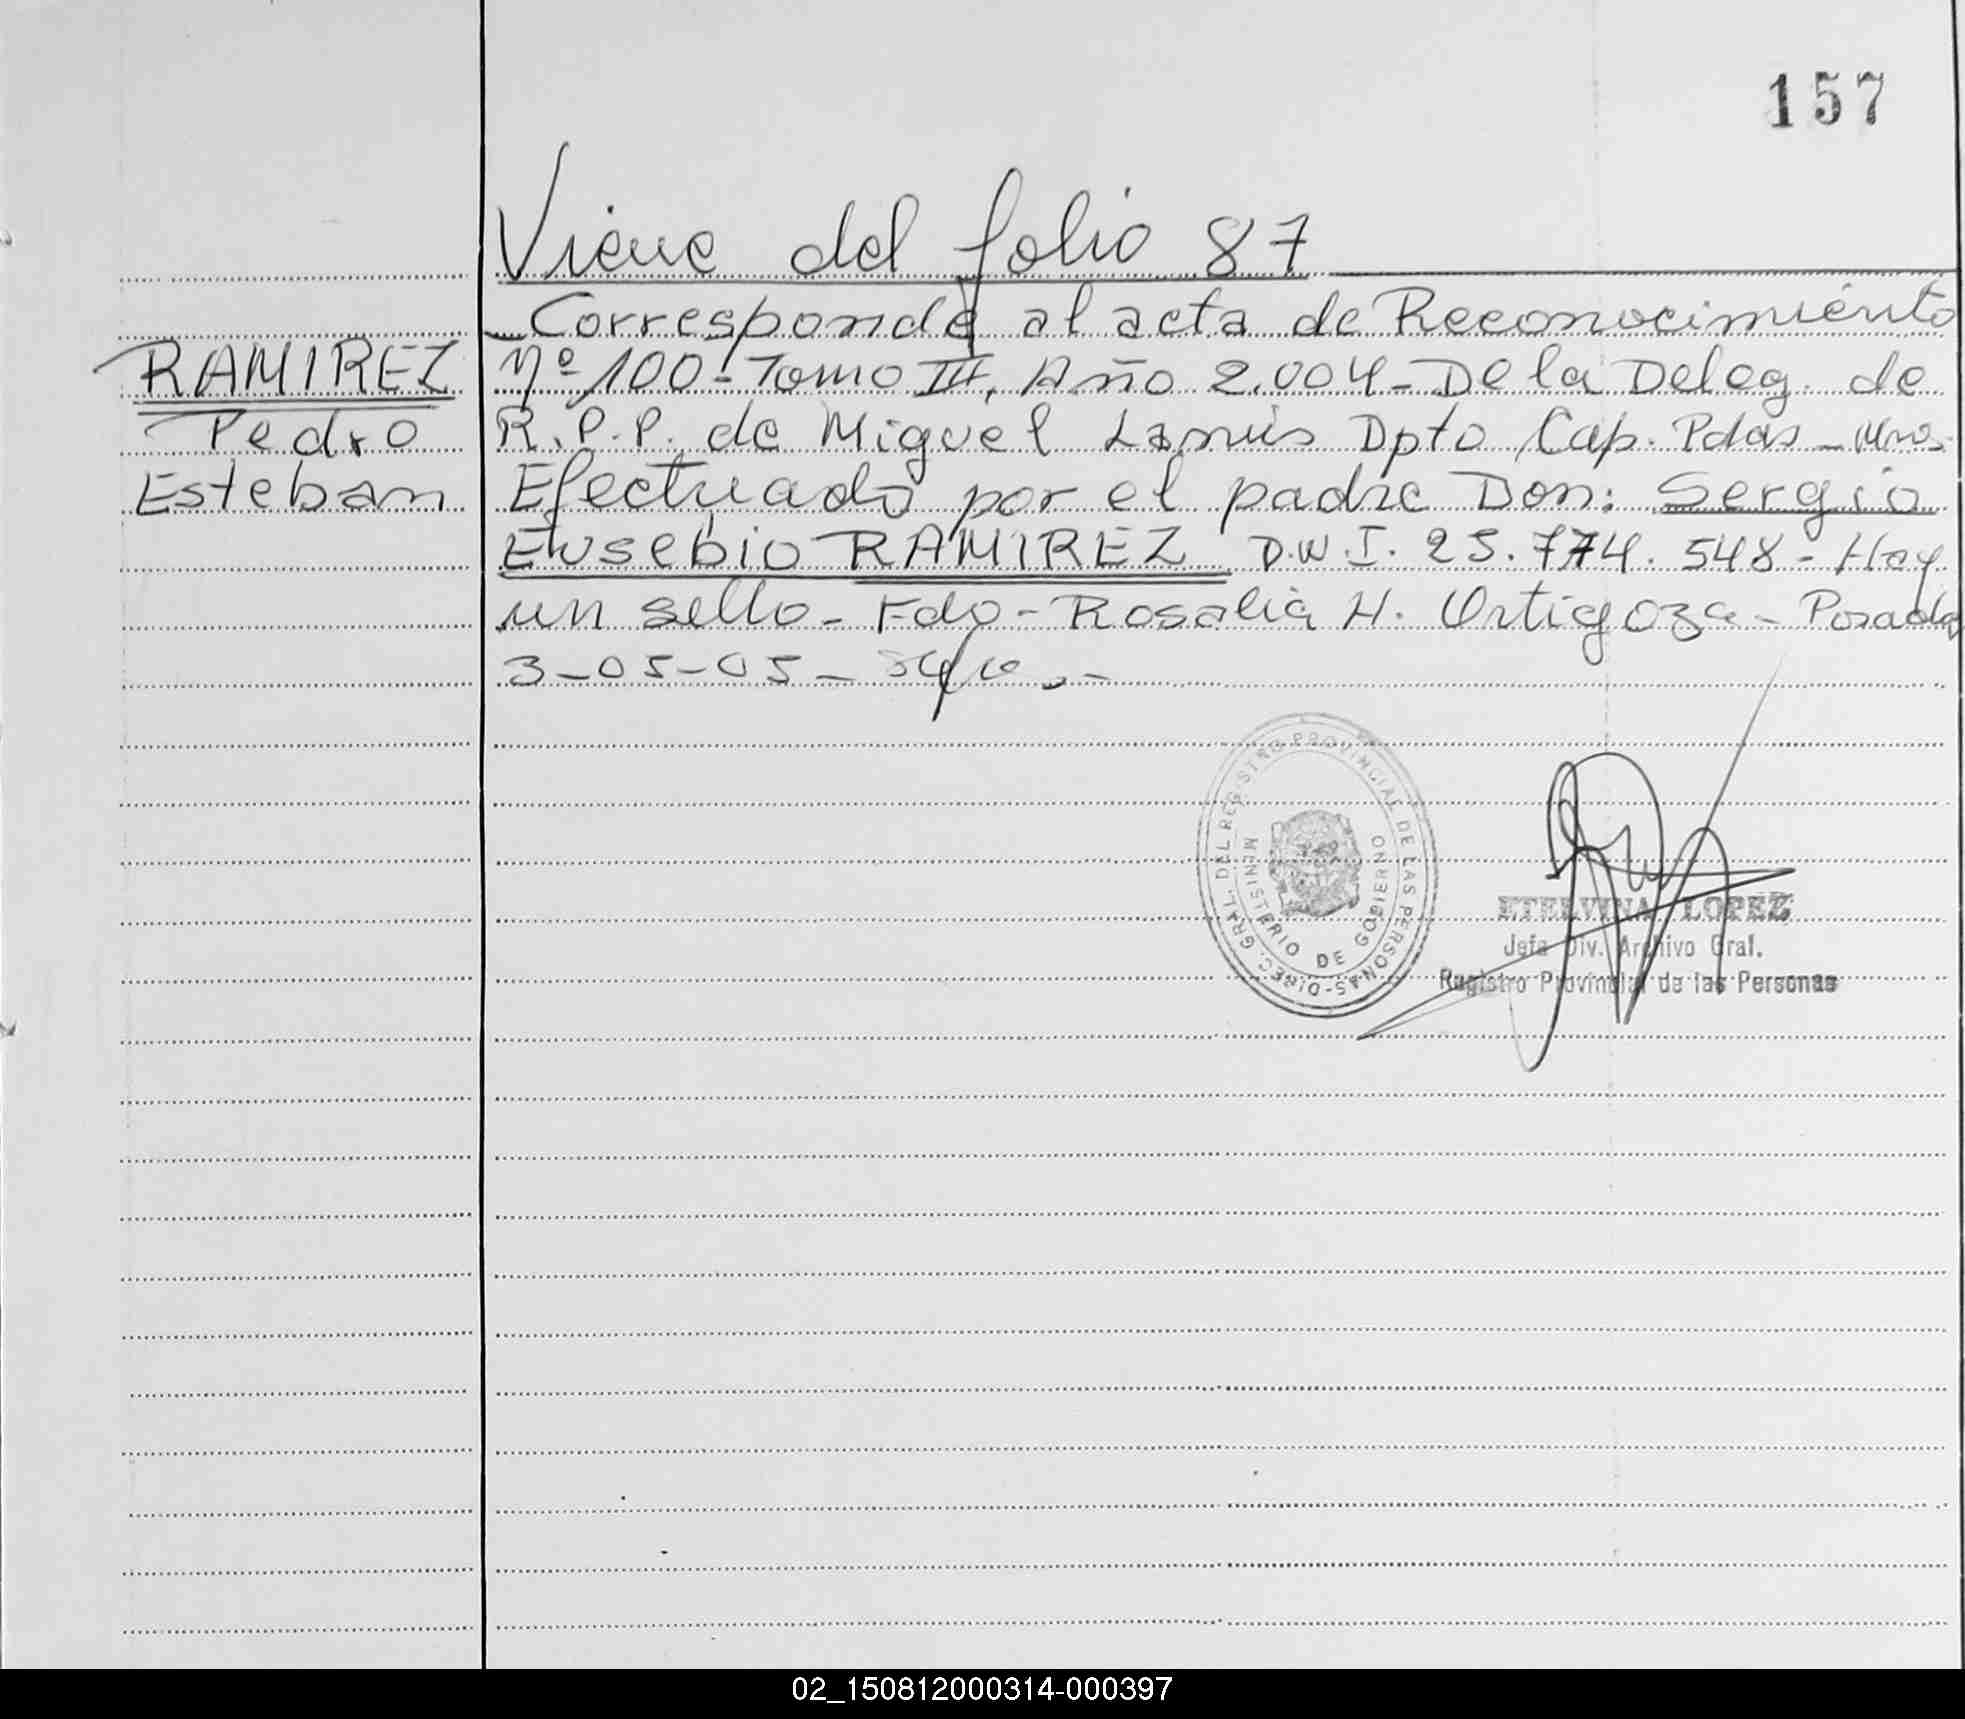 157
Viene del folio 87
Corresponde al acta de Reconocimiento
RAMIREZ
Pedro
Esteban
Nº 100 - Tomo III, Año 2.004 - De la Deleg. de
R.P.P. de Miguel Lanús Dpto Cap. Pdas - Mnes.
Efectuado por el padre Don: Sergio
Eusebio RAMIREZ D.N.I. 25.774.548 - Hay
un sello - Fdo - Rosalia H. Ortigoza - Posadas
3-05-05 -
DIREC. GRAL. DEL REGISTRO PROVINCIAL DE LAS PERSONAS -
MINISTERIO DE GOBIERNO
ETELVINA LOPEZ
Jefa Div. Archivo Gral.
Registro Provincial de las Personas
02_150812000314-000397